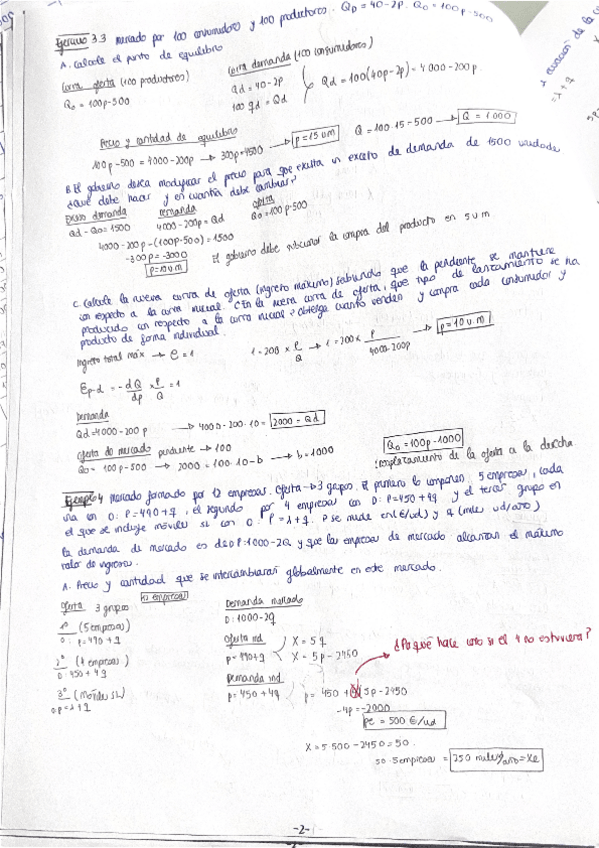 Ejercicio 3.3 mercado por 100 consumidores y 100 productores. QD = 40-2P. Qo = 100p-500
A. Calcule el punto de equilibrio
Curva oferta (100 productores)
Qo = 100p-500
Curva demanda (100 consumidores)
Qd = 40-2p
100 qd = Qd
Qd = 100(40p-2p) = 4000-200p.
Precio y cantidad de equilibrio
100p-500 = 4000-200p → 300p=4500 → p=15um
Q = 100·15-500 → Q = 1000
B. El gobierno desea modificar el precio para que exista un exceso de demanda de 1500 unidades
¿Qué debe hacer y en cuantía debe cambiar?
Exceso demanda
Qd - Qo = 1500
demanda
4000-200p = Qd
oferta
Qo = 100p-500
4000-200p-(100p-500) = 1500
-300p = -3000
p=10um
El gobierno debe la compra del producto en 5um
C. Calcule la nueva curva de oferta (ingreso máximo) sabiendo que la pendiente se mantiene
con respecto a la curva inicial. Con la nueva curva de oferta, que tipo de se ha
producido con respecto a la curva inicial? obtenga cuanto venden y compra cada consumidor y
producto de forma individual.
Ingreso total max → e = 1
1 = 200 x P/Q → 1 = 200 x P/4000-200p → p=10u.m
Ep-d = -dQ/dp x P/Q = 1
Demanda
Qd=4000-200p → 4000-200·10 = 2000 = Qd
oferta de mercado pendiente → 100
Qo = 100p-500 → 2000 = 100·10-b → b=1000
Qo = 100p-1000
desplazamiento de la oferta a la derecha
Ejemplo 4 Mercado formado por 12 empresas. Oferta → 3 grupos. El primero lo componen 5 empresas, cada
una con O: P=490+q, el segundo por 4 empresas con O: P=450+4q y el tercer grupo en
el que se incluye móviles SL con O: P=λ+q. P se mide en (€/ud) y q (miles ud/año)
la demanda de mercado es de D P:1000-2Q y que las empresas de mercado alcanzan el máximo
valor de ingresos.
A. Precio y cantidad que se intercambiaran globalmente en este mercado.
Oferta 3 grupos
12 empresas
1º (5 empresas)
O: p=490+q
2º (4 empresas)
O: 450+4q
3º (Moviles SL)
O p=λ+q
Demanda mercado
D: 1000-2q
Oferta ind
p=490+q
X = 5q
X = 5p-2450
Demanda ind
p=450+4q
p= 450+ 5p-2450
-4p=-2000
pe = 500 €/ud
¿Por qué hace esto si el 4 no estuviera?
X = 5·500-2450 = 50.
50·5 empresas = 250 miles/año = Xe
-2-